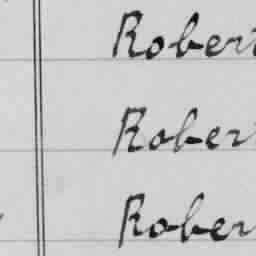 Robert
Rober
Rober